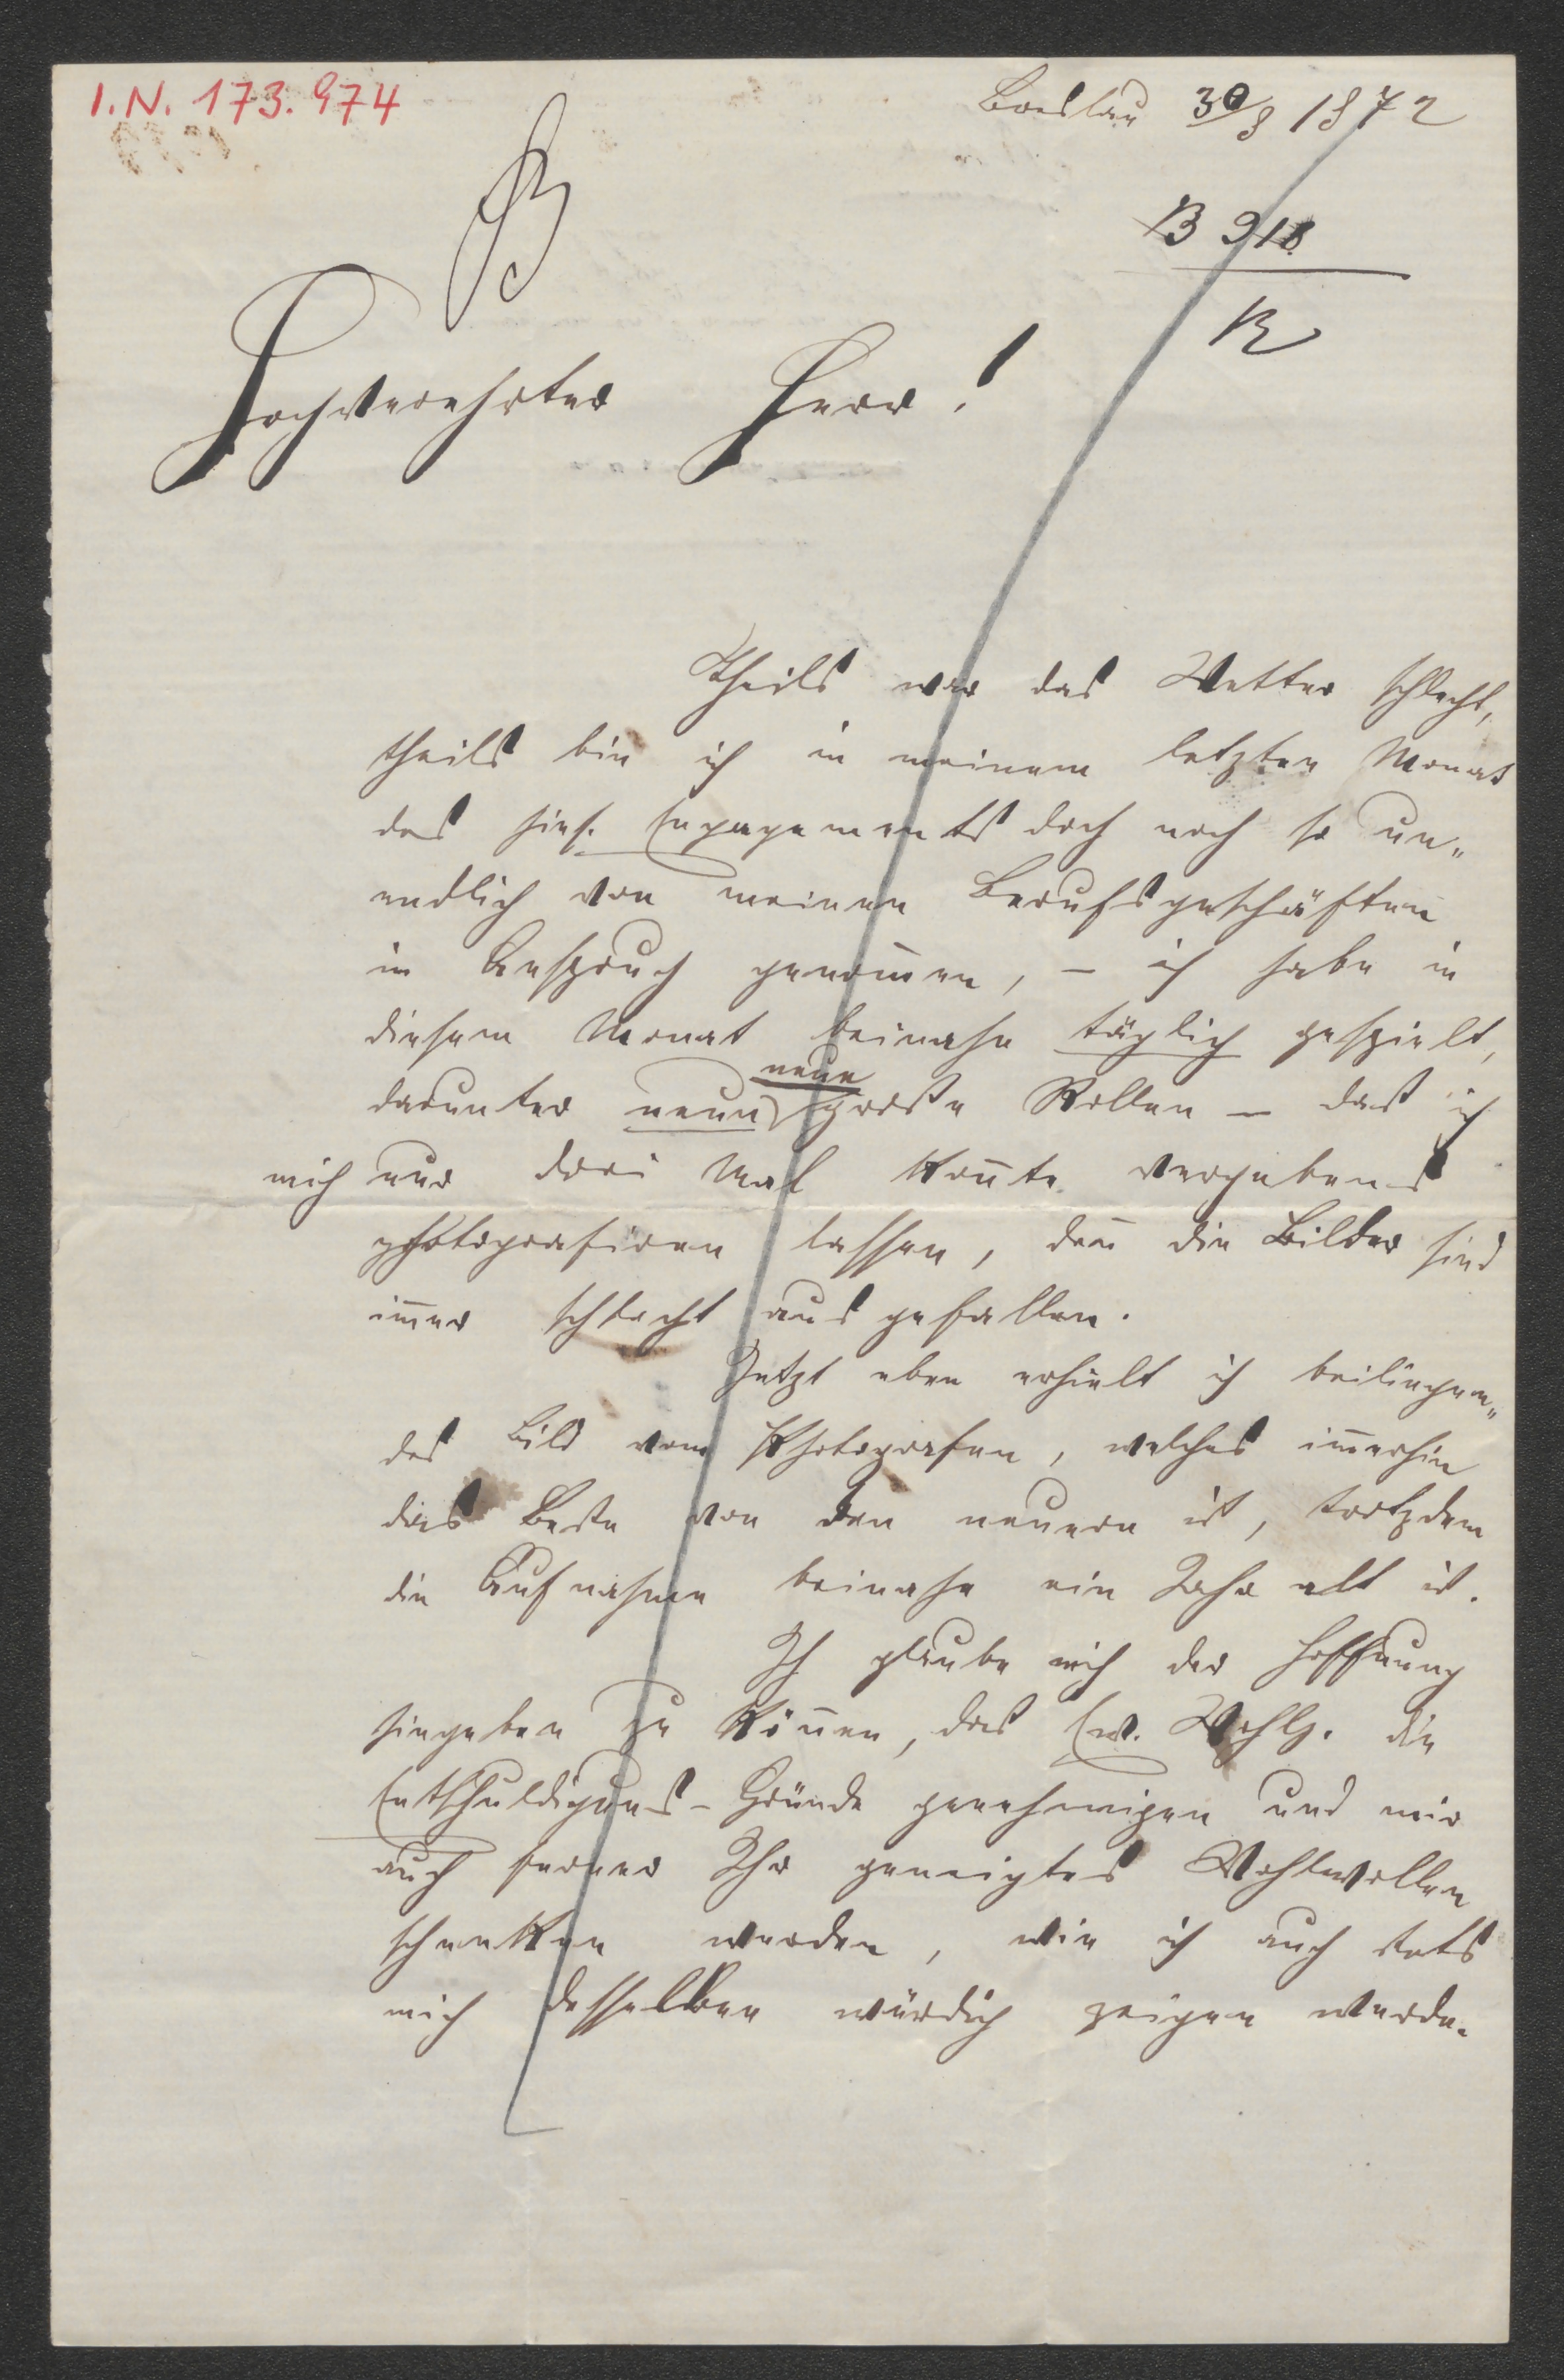 I.N. 173.974
Breslau 30/8 1872
B 918
R
Hochverehrter Herr!
Theils war das Wetter schlecht,
theils bin ich in meinem letzten Monat
des hies. Engagements doch noch so un„
endlich von meinen Berufsgeschäften
in Anspruch genom̅en, – ich habe in
diesem Monat beinahe täglich gespielt,
neue
darunter neun große Rollen – daß ich
mich nur drei Mal kon̅te vergebens
photografiren lassen, den̅ die Bilder sind
im̅er schlecht ausgefallen.
Jetzt eben erhielt ich beiliegen„
des Bild vom Photografen, welches im̅erhin
das Beste von den neuern ist, trotzdem
die Aufnahme beinahe ein Jahr alt ist.
Ich glaube mich der Hoffnung
hingeben zu kön̅en, das Ew. Wohlg. die
Entschuldiguns-Gründe genehmigen und mir
auch ferner Ihr geneigtes Wohlwollen
schenken werden, wie ich auch stets
mich desselben würdich zeigen werde.